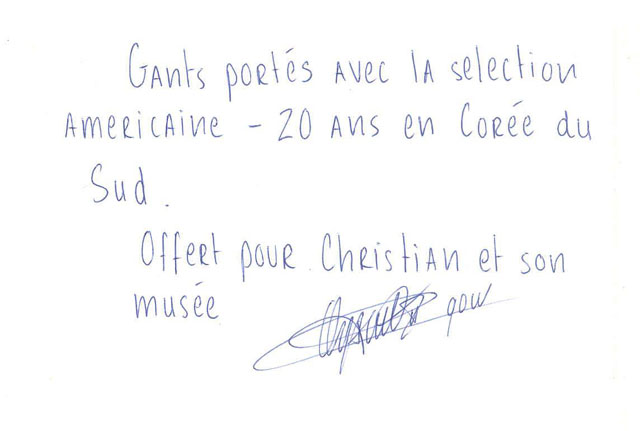 Gants portés avec la selection
americaine - 20 ans en Corée du
Sud.
Offert pour Christian et son
musée